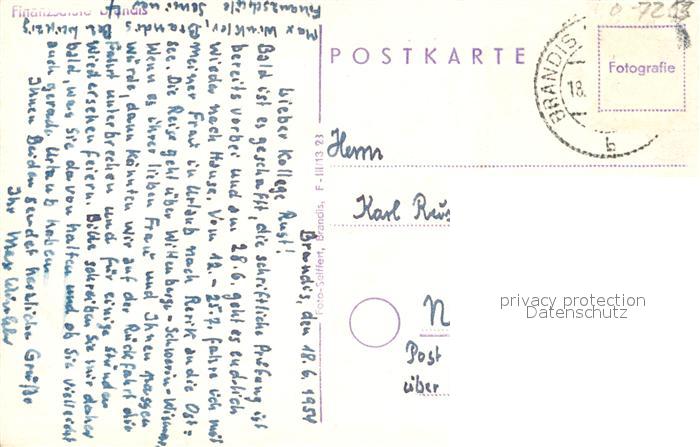 Finanzschule Brandis
Max Winkler, Brandis
Finanzschule Seminar
bei Leipzig
Brandis, den 18.6.1951
Lieber Kollege Rust!
Bald ist es geschafft, die schriftliche Prüfung ist
bereits vorbei und am 28.6. geht es endlich
wieder nach Hause. Vom 12. – 25.7. fahre ich mit
meiner Frau in Urlaub nach Rerik an die Ost-
see. Die Reise geht über Wittenberge – Schwerin – Wismar.
Wenn es ihrer lieben Frau und Ihnen passen
würde, dann könnten wir auf der Rückfahrt die
Fahrt unterbrechen und für einige Stunden
Wiedersehen feiern. Bitte schreiben Sie mir daher
bald, was Sie davon halten und ob Sie vielleicht
auch gerade Urlaub haben.
Ihnen Beiden sendet herzliche Grüße
Ihr Max Winkler
Foto-Seiffert, Brandis, F-III 13 23
POSTKARTE
0-7253
BRANDIS
18.
b
Fotografie
Herrn
Karl Rus
N
Post
über
privacy protection
Datenschutz